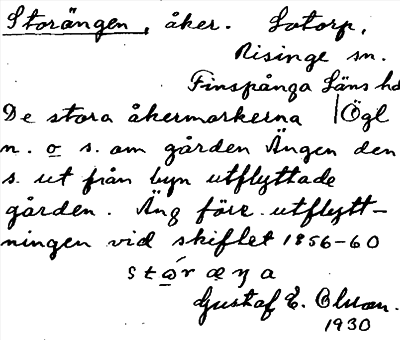 Storängen, åker. Lotorp,
Risinge sn.
Finspånga Läns hd
De stora åkermarkerna | Ögl
n. o s. om gården Ängen den
s. ut från byn utflyttade
gården. Äng före utflytt-
ningen vid skiftet 1856-60
Gustaf E. Olsson.
1930